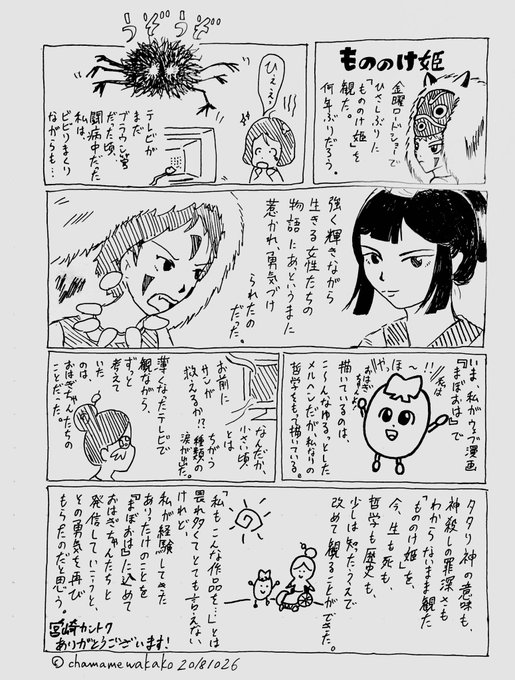 もののけ姫
金曜ロードショーで
ひさしぶりに
「もののけ姫」を
観た。
何年ぶりだろう。
うぞ
うぞ
ひぇぇ。
テレビが
まだ
ブラウン管
だった頃、
闘病中だった
私は、
ビビりまくり
ながらも…
強く輝きながら
生きる女性たちの
物語にあというまに
惹かれ、勇気づけ
られたの
だった。
いま、私がウェブ漫画
『まぼおは』で
描いているのは、
こ〜んなゆるっとした
メルヘンだが、私なりの
哲学をもって描いている。
やっほ〜!!
おはぎ
ちゃんだよ
お前に
サンが
救えるか!?
なんだか、
小さい頃
とは
ちがう
種類の
涙が出た。
薄くなったテレビで
観ながら、
ずっと
考えて
いた
のは、
おはぎちゃんたちの
ことだった。
タタリ神の意味も、
神殺しの罪深さも
わからないまま観た
「もののけ姫」を、
今、生も死も、
哲学も歴史も、
少しは知たうえで
改めて観ることができた。
「私もこんな作品を…」とは
畏れ多くてとても言えない
けれど、
私が経験してきた
ありったけのことを
『まぼおは』に込めて
おはぎちゃんたちと
発信していこうと、
その勇気を再び
もらたのだと思う。
宮崎カントク
ありがとうございます!
©chamamewakako 20181026